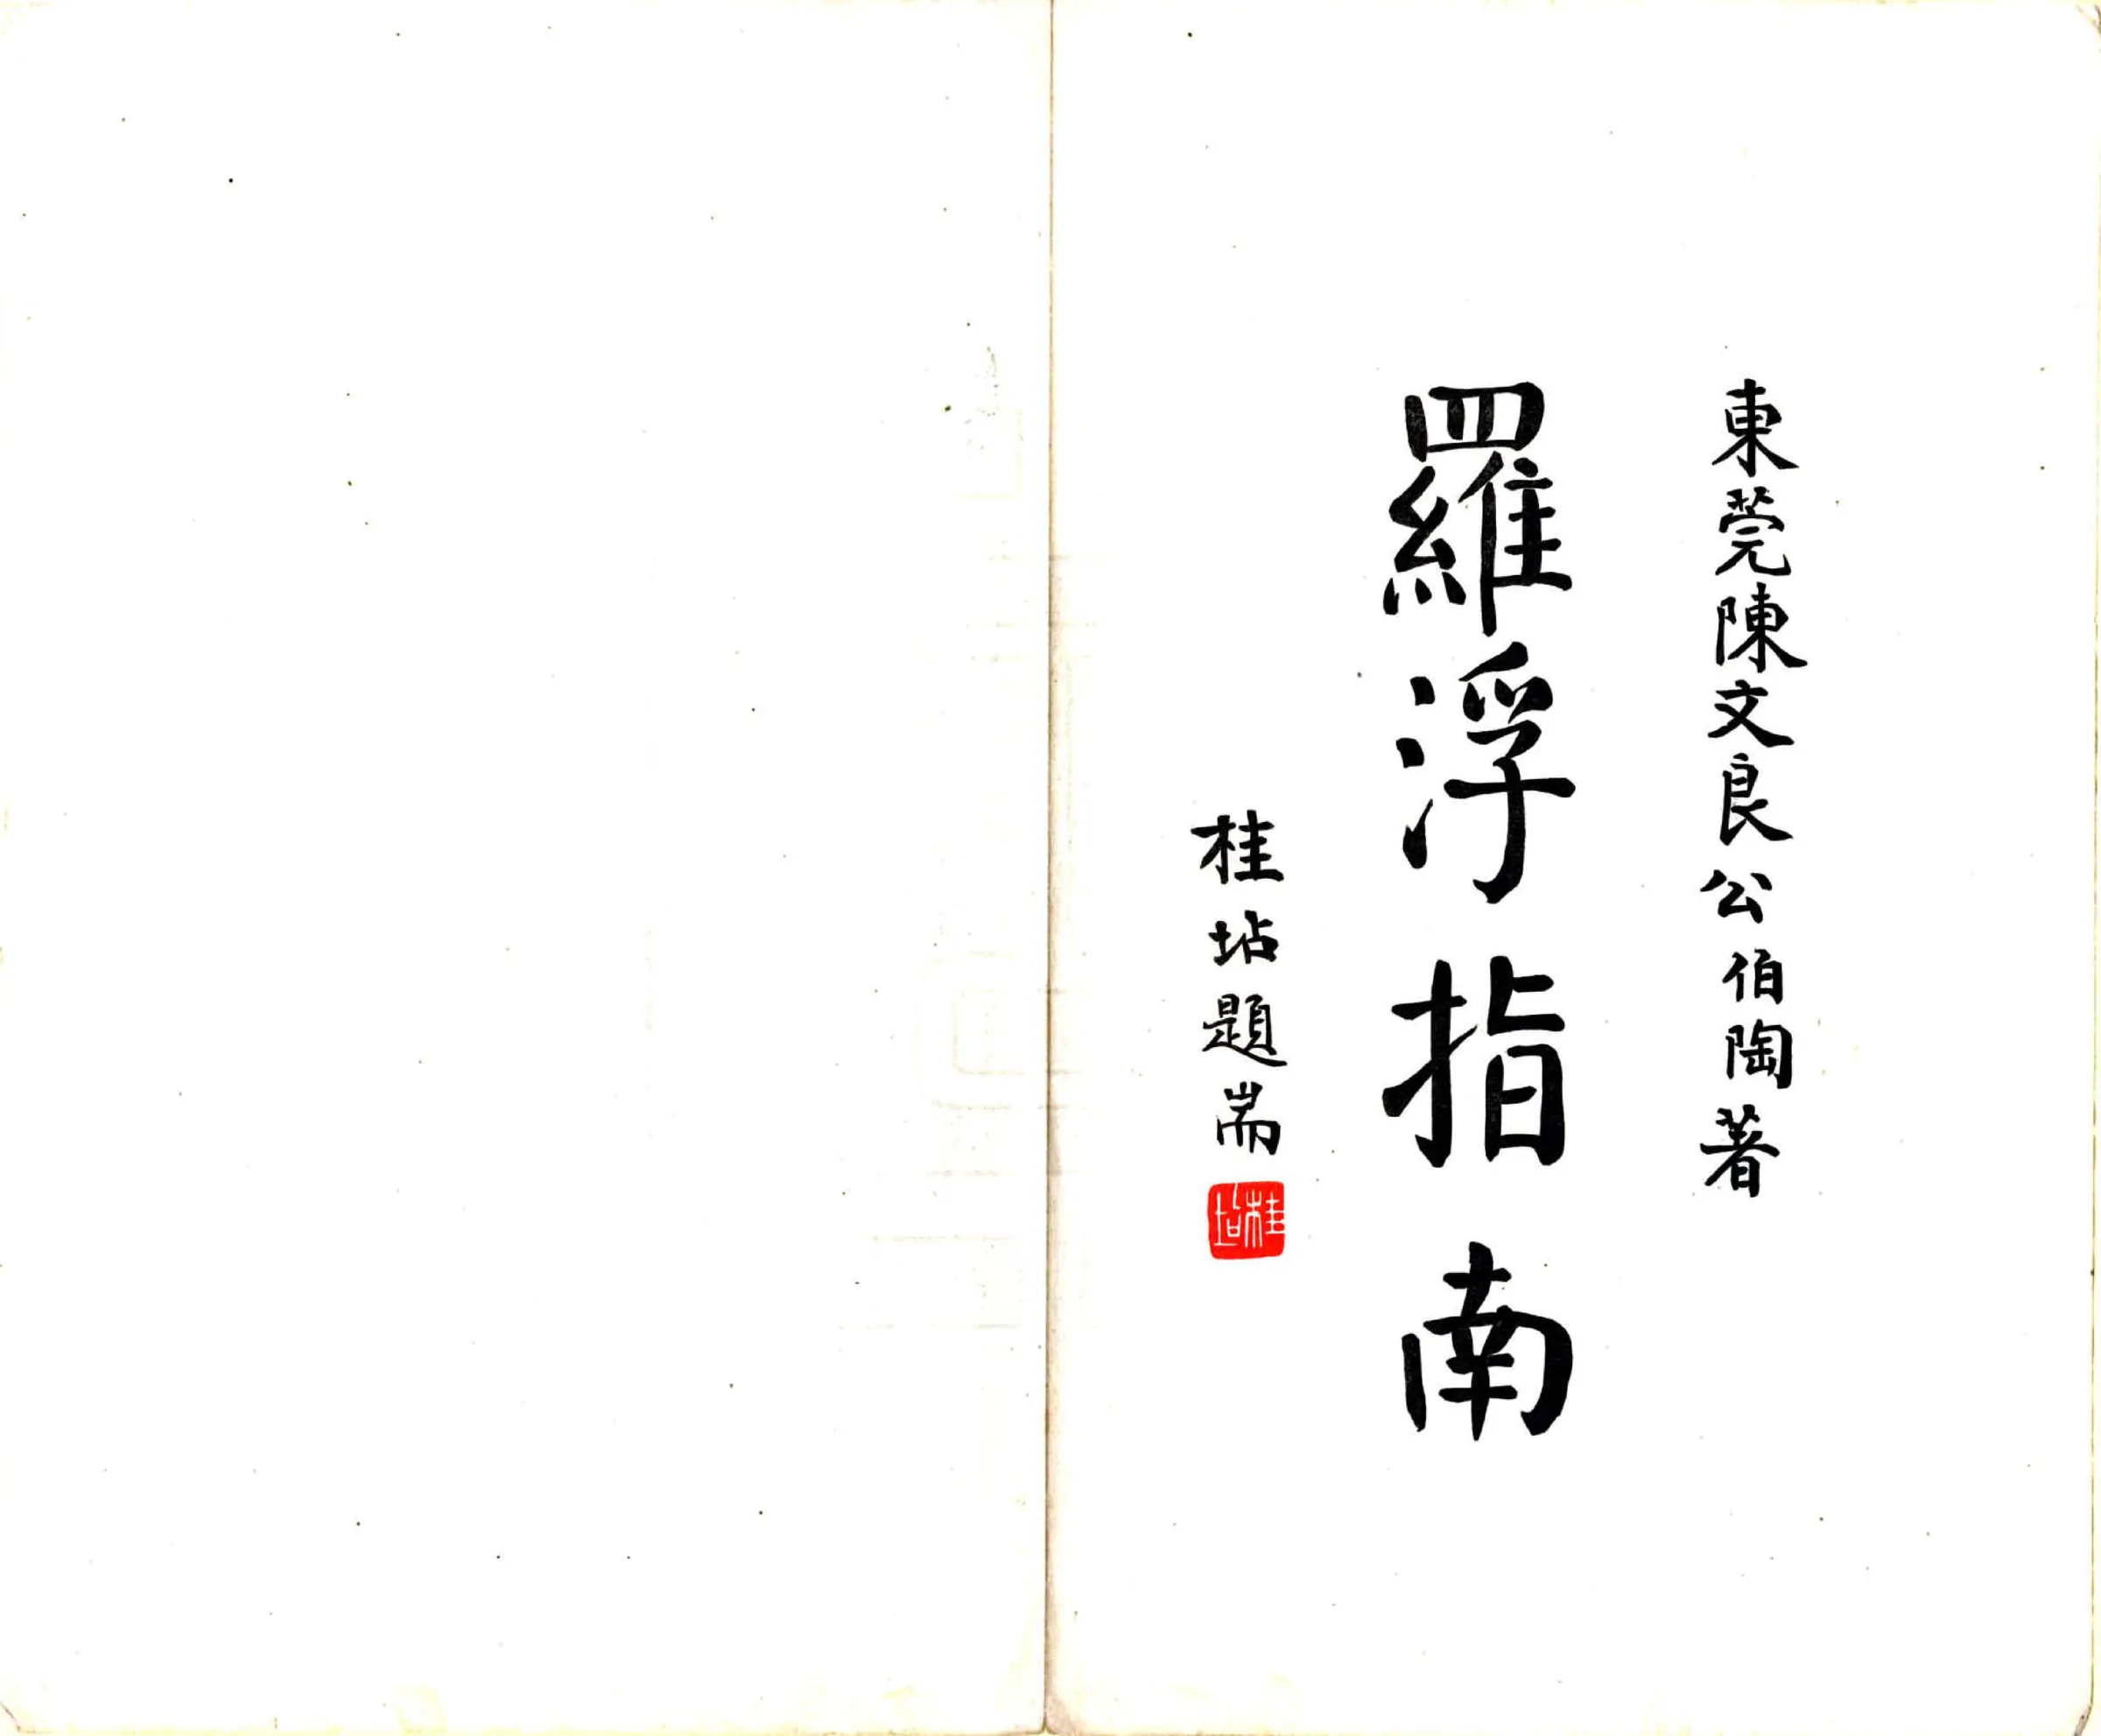 東莞陳文良公伯陶著
羅浮指南
桂坫題耑
桂坫